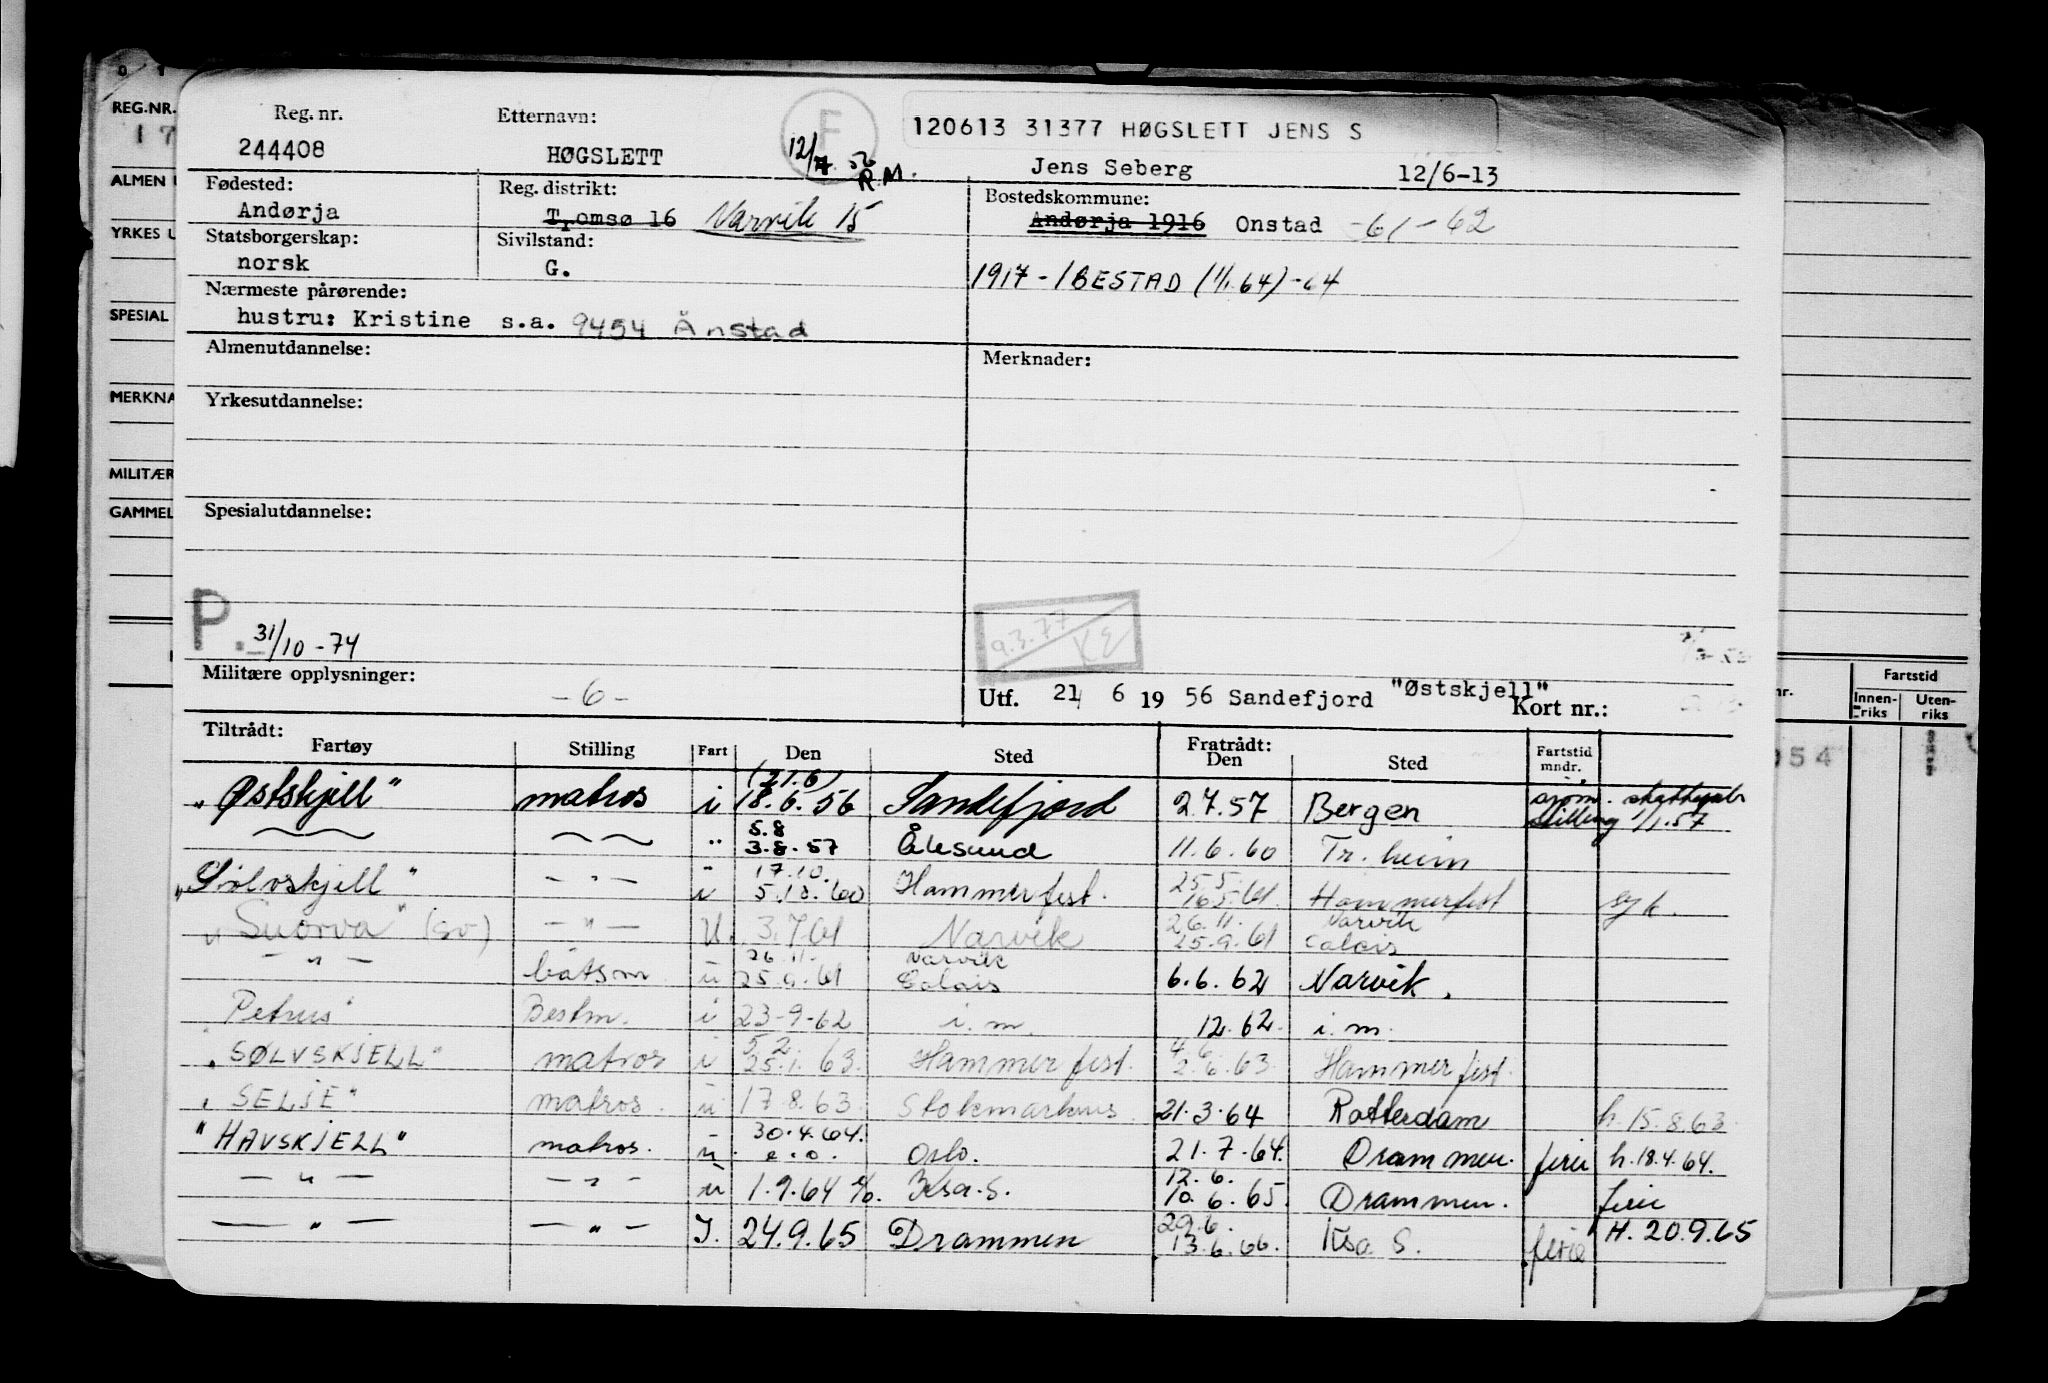 0 1
REG.NR.
17
ALMEN U
YRKES U
SPECIAL
MERKNA
MILITÆR
GAMMEL
Reg. nr. Etternavn: F 120613 31377 HØGSLETT JENS S
244408 HØGSLETT 12/7. 56 R.M. Jens Seberg 12/6-13
Fødested: Reg. distrikt: Bostedskommune:
Andørja Tromsø 16 Narvik 15 Andørja 1916 Onstad -61-62
Statsborgerskap: Sivilstand:
norsk G. 1917 - IBESTAD (1/1.64) -64
Nærmeste pårørende:
hustru: Kristine s.a. 9454 Ånstad
Almenutdannelse: Merknader:
Yrkesutdannelse:
Spesialutdannelse:
P. 31/10-74
9.3.77 KE
Militære opplysninger: -6-
Utf. 21 6 19 56 Sandefjord "Østskjell" Kort nr.:
Tiltrådt: Fratrådt:
Fartøy Stilling Fart Den Sted Den Sted Fartstid mndr.
(21.6)
"Østskjell" matros i 18.6.56 Sandefjord 2.7.57 Bergen stilling 1/1.57
5.8
" 3.8.57 Ålesund 11.6.60 Tr.heim
17.10. 25.5.
"Sølvskjell" - " - i 5.10.60 Hammerfest. 16.5.61 Hammerfest syk.
26.11. Narvik
"Suorva" (sv) - " - U. 3.7.61 Narvik 25.9.61 Calais
26.11. Narvik
- " - båtsm. u 25.9.61 Calais 6.6.62 Narvik.
"Petrus" Bestm. i 23-9-62 i.m. 12.62. i.m.
5.2. 4.6
"SØLVSKJELL" matros i 25.1.63. Hammerfest. 2.6.63. Hammerfest.
"SELJE" matros. u 17.8.63. Stokmarknes. 21.3.64 Rotterdam h.15.8.63.
30.4.64.
"HAVSKJELL" matros. u. e.o. Oslo. 21.7.64. Drammen. ferie h.18.4.64.
12.6.
- " - - " - u 1.9.64 Krsa.S. 10.6.65. Drammen. ferie
29.6.
- " - - " - I. 24.9.65 Drammen 13.6.66. Krsa S. ferie H. 20.9.65
Fartstid
nr. Innen-riks Uten-riks
054